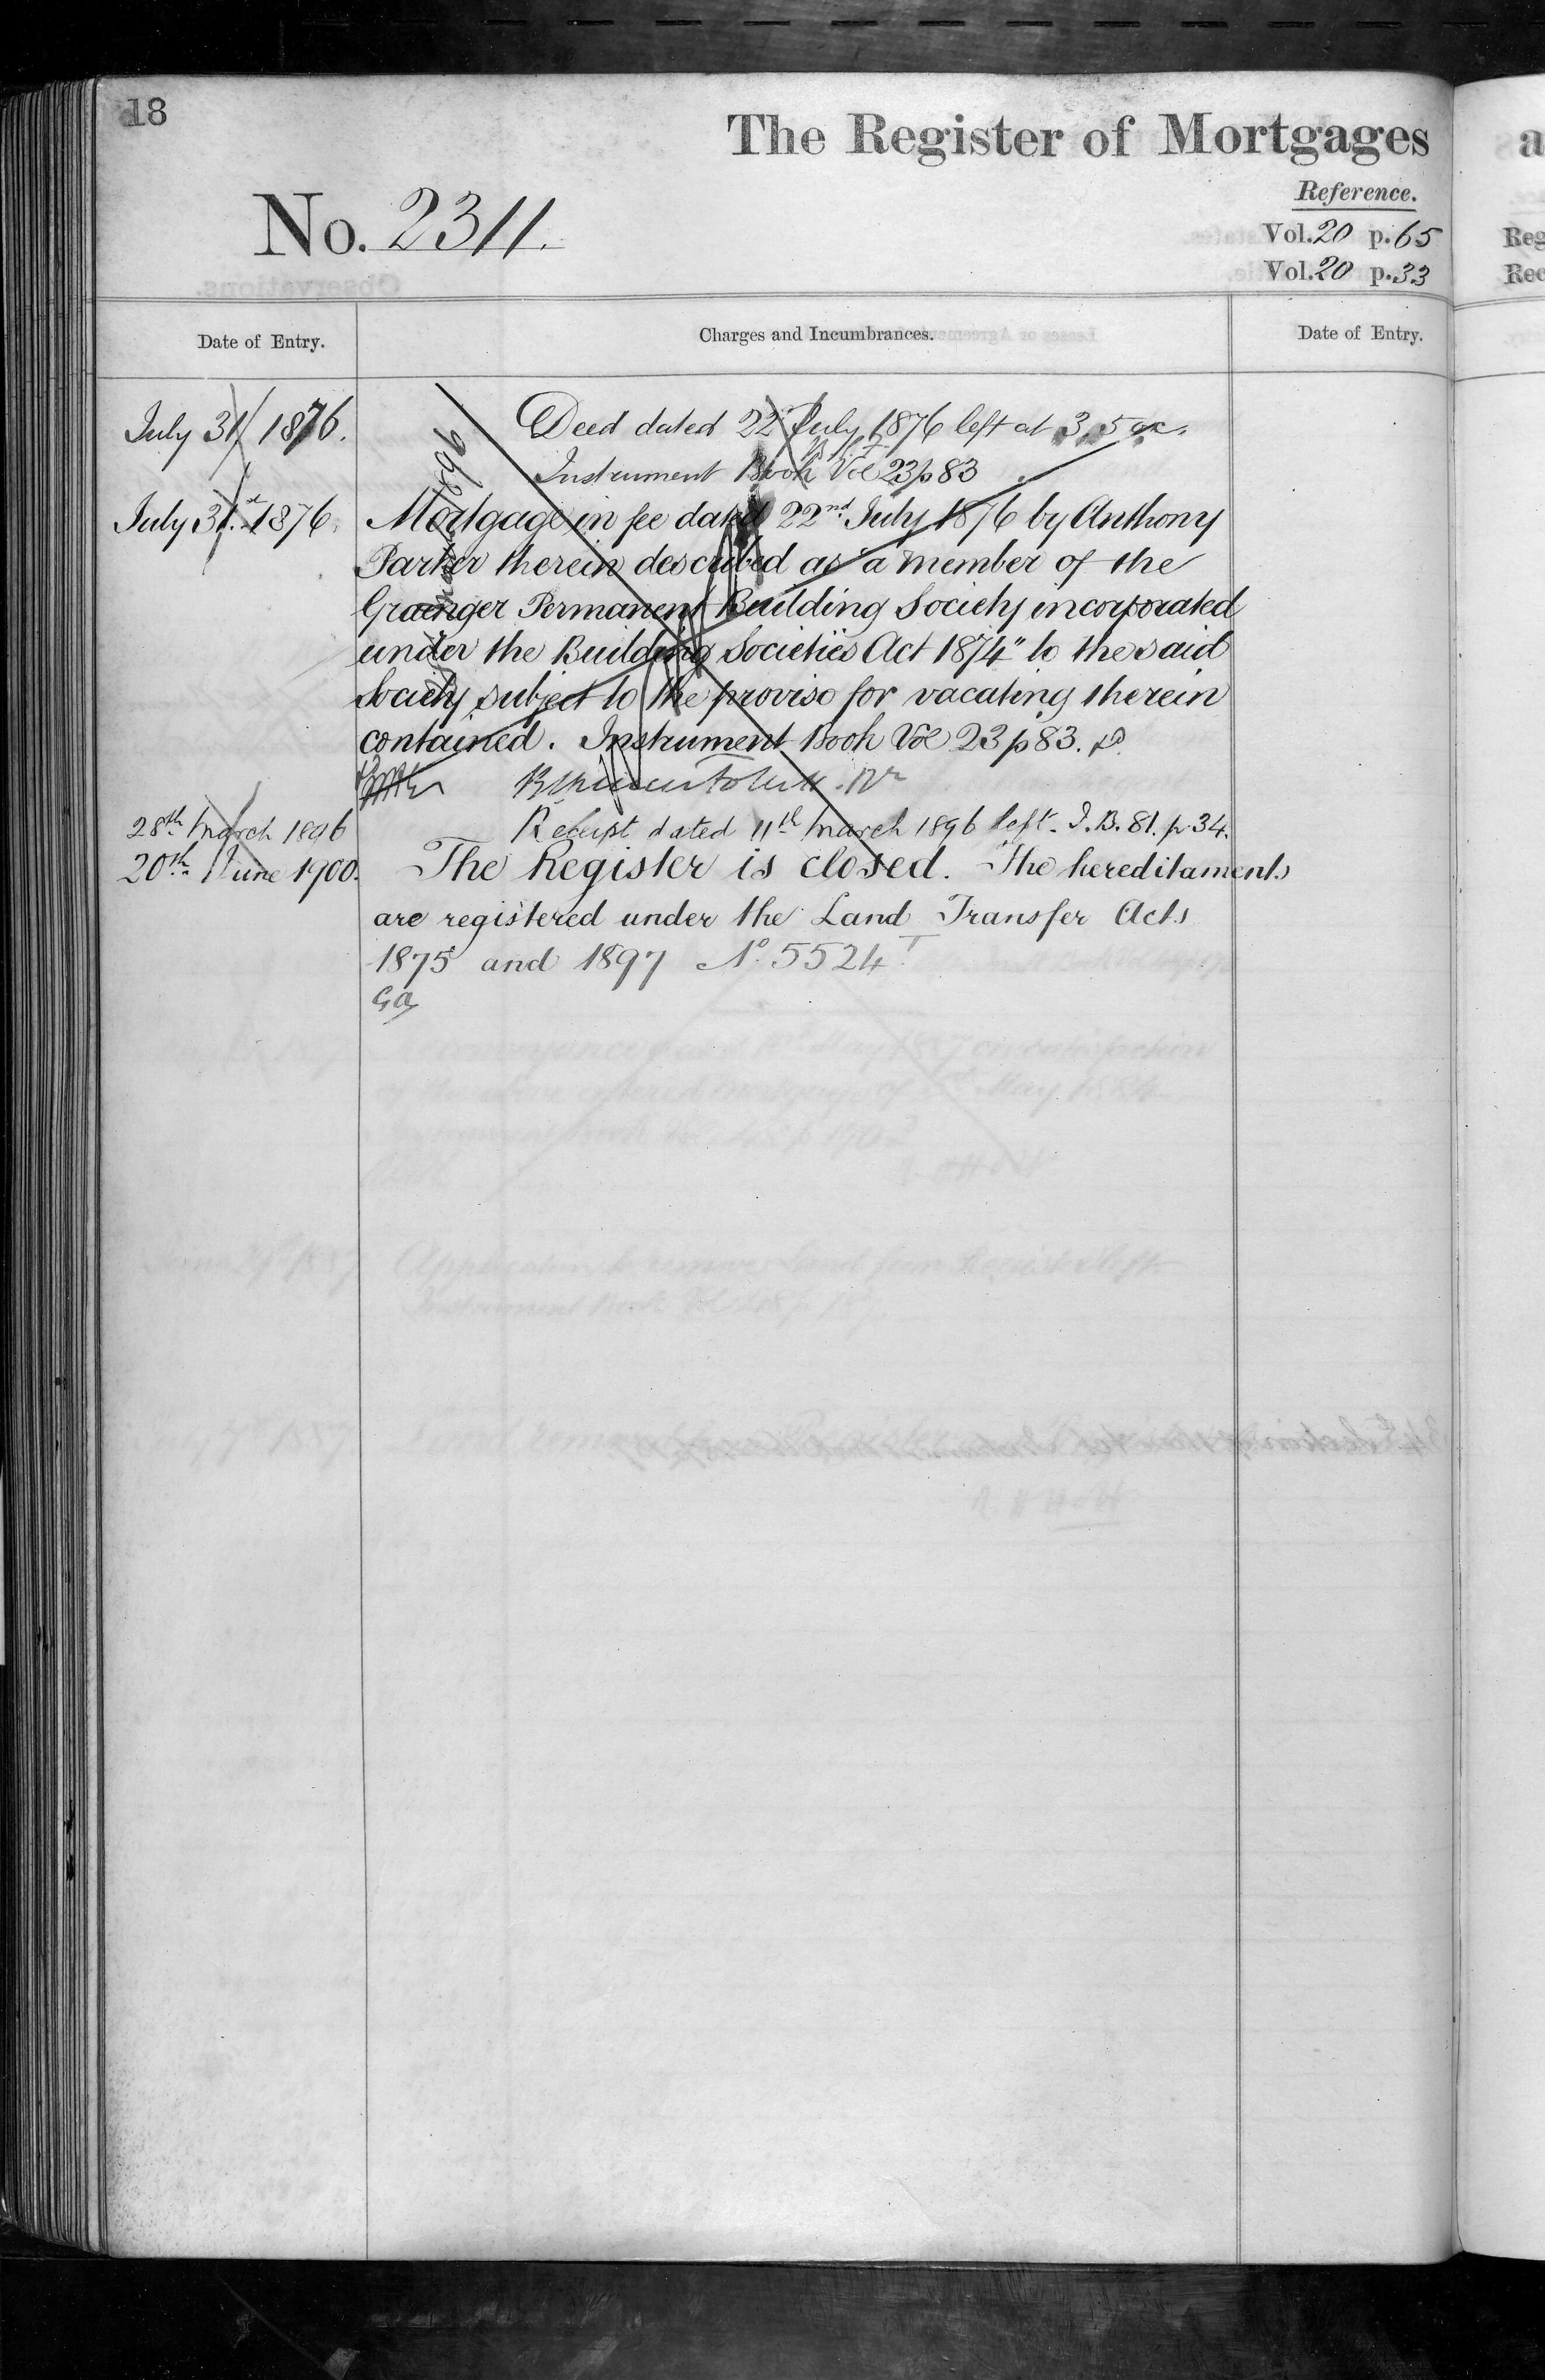 18
The Register of Mortgages
Reference.
No. 2311.
Vol. 20 p. 65
Vol. 20 p. 33
Date of Entry.
Charges and Incumbrances.
Date of Entry.
July 31/ 1876.
Deed dated 22 July 1876 left at 3,5
Instrument Book Vol 23 p 83
July 31st 1876.
Mortgage in fee dated 22nd July 1876 by Anthony
Parker therein described as "a member of the
Grainger Permanent Building Society incorporated
under the Building Societies Act 1874" to the said
Society subject to the proviso for vacating therein
contained. Instrument Book Vol 23 p 83.
28th March 1896
Receipt dated 11th March 1896 left. I.B. 81. p. 34.
20th June 1900.
The Register is closed. The hereditaments
are registered under the Land Transfer Acts
1875 and 1897 No. 5524
GA
a
Reg
Rec